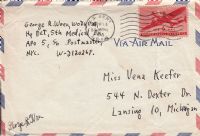 George R. Wren, WOJG, USA
Hq Det, 5th Medical Bn
APO 5, c/o Postmaster
NYC. W-2120267.
VIA AIR MAIL
Miss Vena Keefer
544 N. Dexter Dr.
Lansing 10, Michigan
George R Wren